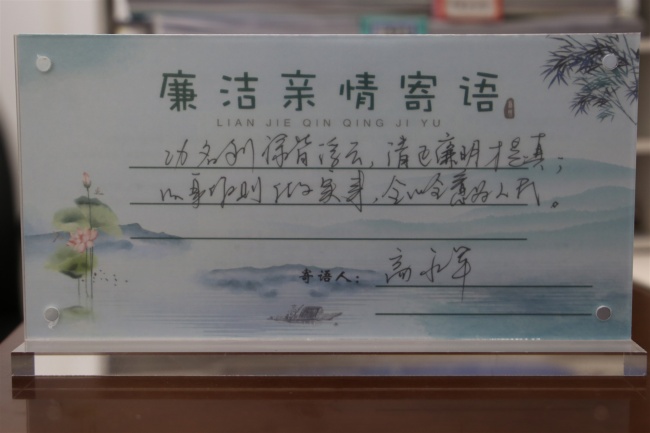 廉洁亲情寄语
LIAN JIE QIN QING JI YU
功名利禄皆浮云，清正廉明才是真；
以身作则做实事，全心全意为人民。
寄语人：高永军